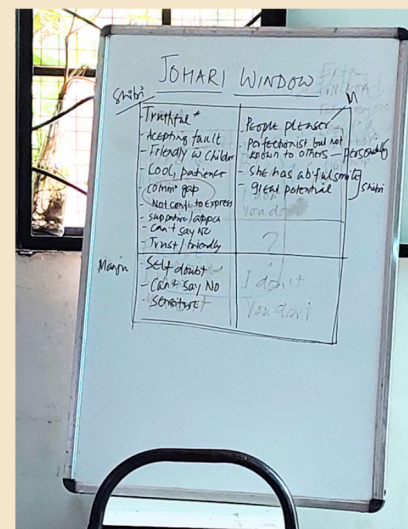 JOHARI WINDOW
Shibi
Truthful *
- Accepting fault
- Friendly w Childer
- Cool, patience
- Comm gap
Not conf. to Express
- Supportive/
- Can't say NO
- Trust/friendly
- People pleaser
- perfectionist but not known to others - personally
- She has a b'ful smile
- great potential
Shibi
you don
?
Manju
- Self doubt
- Can't say No
- Sensitive
I don't
You don't